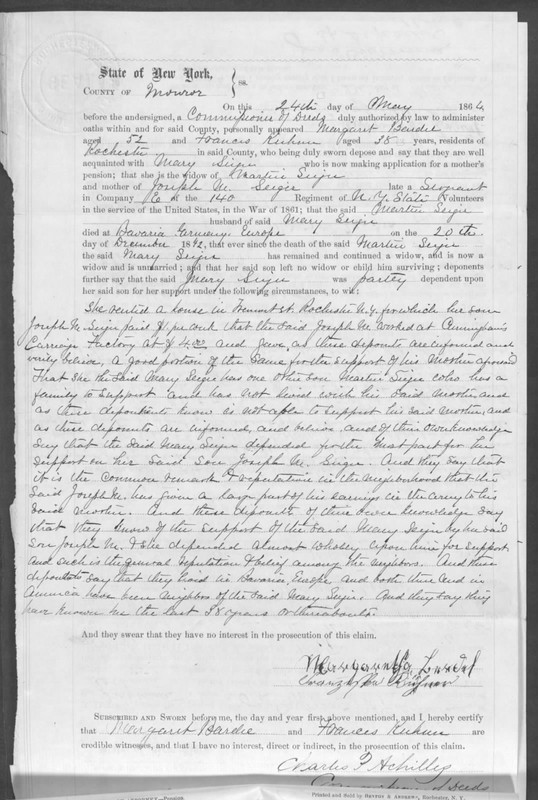 State of New York,
COUNTY OF Monroe } ss.
On this 24th day of May 1866,
before the undersigned, a Commissioner of Deeds duly authorized by law to administer
oaths within and for said County, personally appeared Margaret Bardie
aged 52 and Francis Kuhnn (aged 38 years, residents of
Rochester in said County, who being duly sworn depose and say that they are well
acquainted with Mary Seigr who is now making application for a mother's
pension; that she is the widow of Martin Seigr
and mother of Joseph M. Seigr late a Sergeant
in Company E of the 140 Regiment of N.Y. State Volunteers
in the service of the United States, in the War of 1861; that the said Martin Seigr
husband of said Mary Seigr
died at Bavaria Germany Europe on the 20th
day of December 1842, that ever since the death of the said Martin Seigr
the said Mary Seigr has remained and continued a widow, and is now a
widow and is unmarried; and that her said son left no widow or child him surviving; deponents
further say that the said Mary Seigr was partly dependent upon
her said son for her support under the following circumstances, to wit:
She rented a house in Fremont st. Rochester N.Y. for which her son
Joseph M. Seigr paid that the said Joseph M. worked at Cunninghams
Carriage Factory at and gave, as these deponents are informed and
verily believe, a good portion of the same for the support of his Mother aforesaid
That she the said Mary Seigr has one other son Martin Seigr who has a
family to support and has not lived with his said mother, and
as these deponents know is not able to support his said Mother, and
as these deponents are informed, and believe, and of their own knowledge
say that the said Mary Seigr depended for the most part for her
support on her said Son Joseph M. Seigr. And they say that
it is the common remark & reputation in the neighborhood that the
said Joseph M. has given a large part of his earnings in the army to his
said Mother. And these deponents of their own knowledge say
that they know of the support of the said Mary Seigr by her said
Son Joseph M. & she depended almost wholly upon him for support
and such is the general reputation & belief among the neighbors. And these
deponents say that they lived in Bavaria, Europe and both there and in
America have been neighbors of the said Mary Seigr. And they say they
have known her the last 38 years or thereabouts.
And they swear that they have no interest in the prosecution of this claim.
Margaretha
SUBSCRIBED AND SWORN before me, the day and year first above mentioned, and I hereby certify
that Margaret Bardie and Francis Kuhnn are
credible witnesses, and that I have no interest, direct or indirect, in the prosecution of this claim.
Charles F Achilles
Commissioner of Deeds
Printed and Sold by BENTON & ANDREWS, Rochester, N. Y.